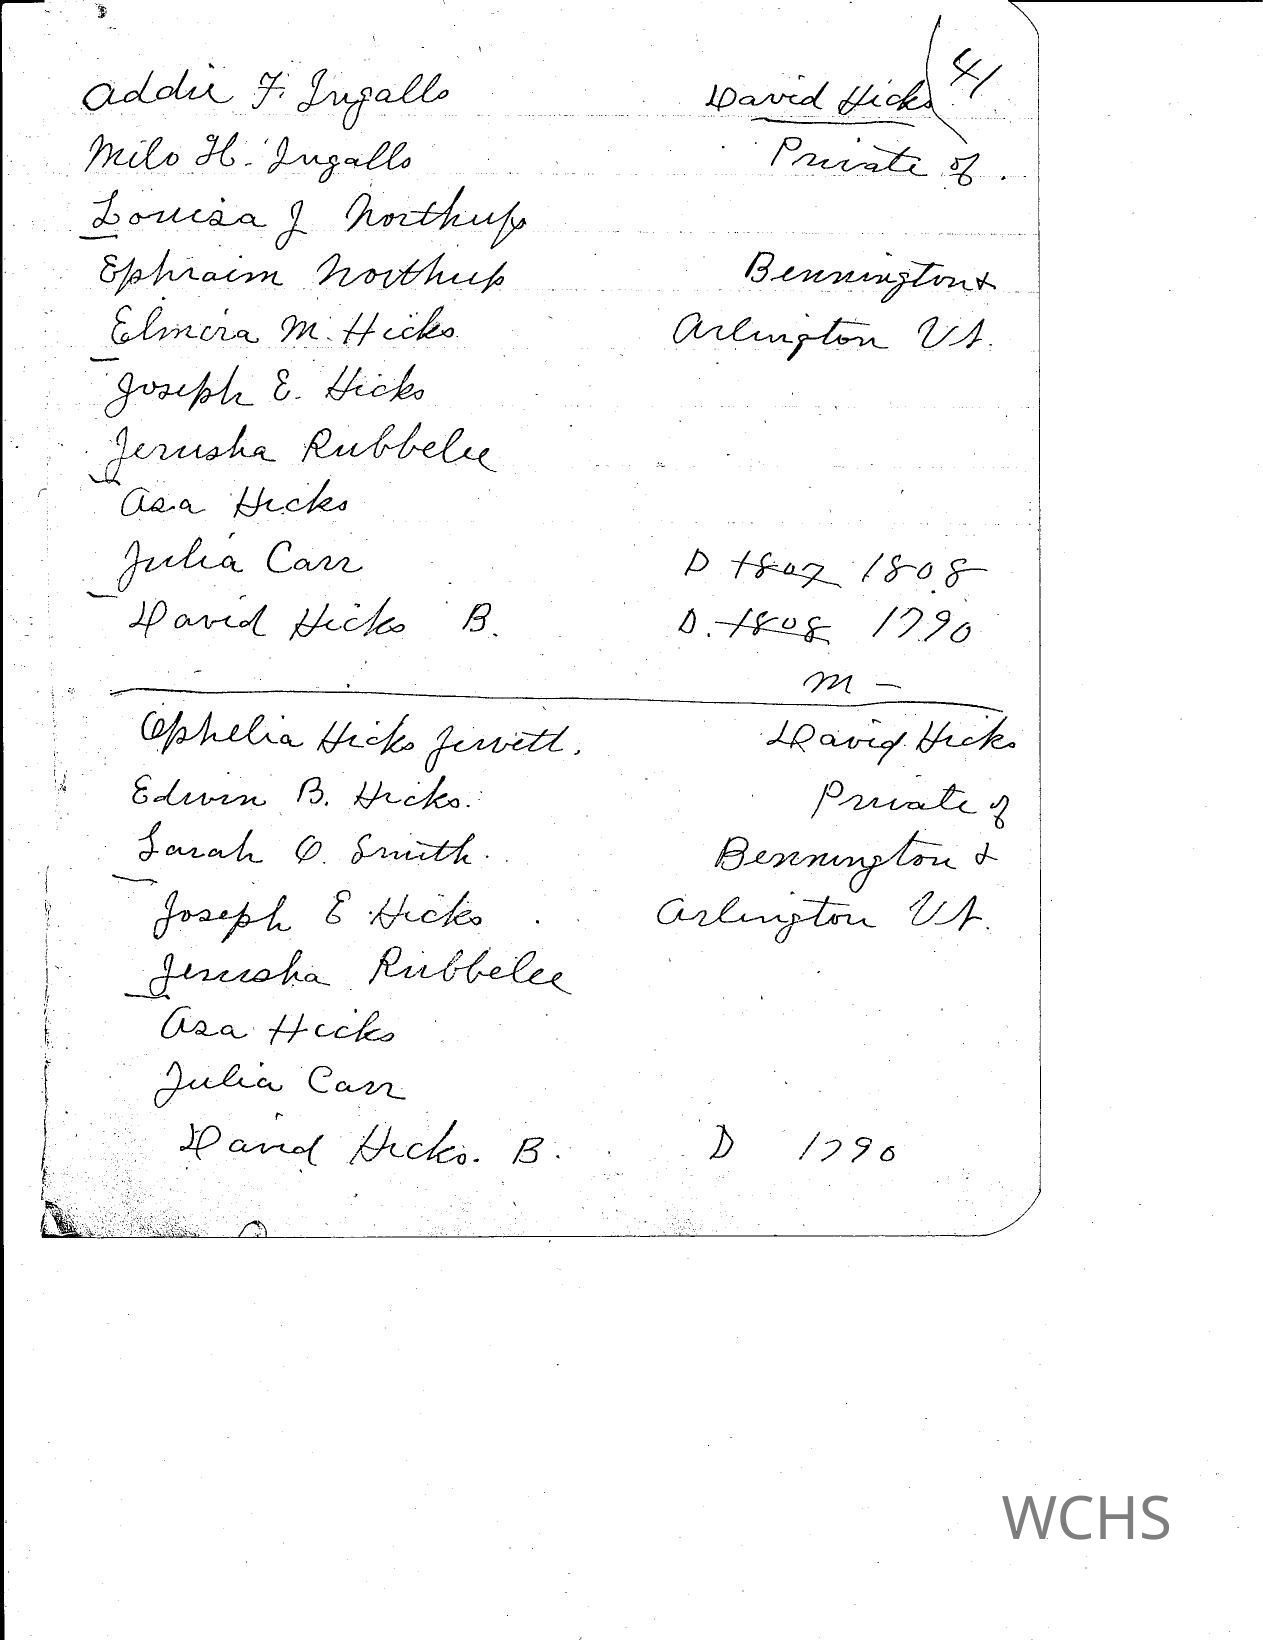 41
Addie F. Ingalls David Hicks
Milo H. Ingalls Private of
Louisa J Northup
Ephraim Northup Bennington &
Elmira M. Hicks Arlington Vt.
Joseph E. Hicks
Jerusha Rubbelee
Asa Hicks
Julia Carr D 1807 1808
David Hicks B. D. 1808 1790
M –
Ophelia Hicks Jewett. David Hicks
Edwin B. Hicks. Private of
Sarah O. Smith. Bennington &
Joseph E Hicks Arlington Vt.
Jerusha Rubbelee
Asa Hicks
Julia Carr
David Hicks. B. D 1790
WCHS